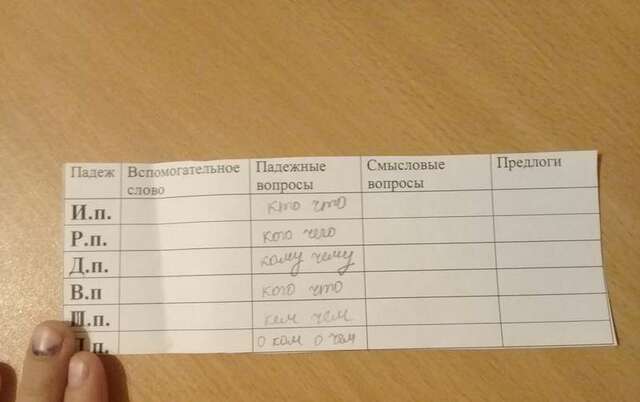 Падеж Вспомогательное слово Падежные вопросы Смысловые вопросы Предлоги
И.п. кто что
Р.п. кого чего
Д.п. кому чему
В.п кого что
.п. кем чем
П.п. о ком о чем